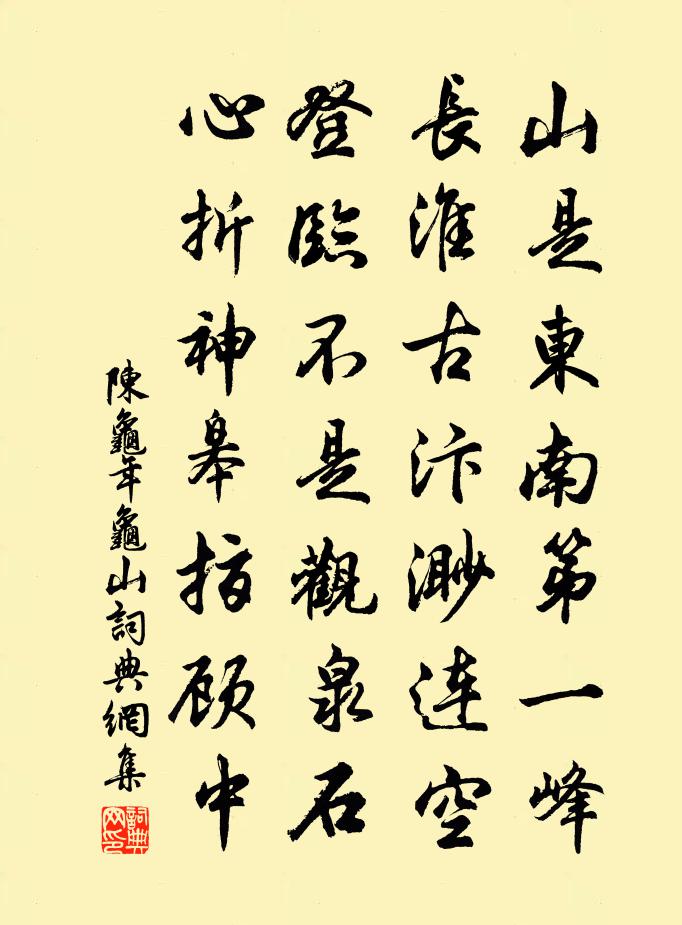 山是東南第一峰
長淮古汴渺連空
登臨不是觀泉石
心折神皋指顾中
陳龜年龜山詞典網集
詞典网印